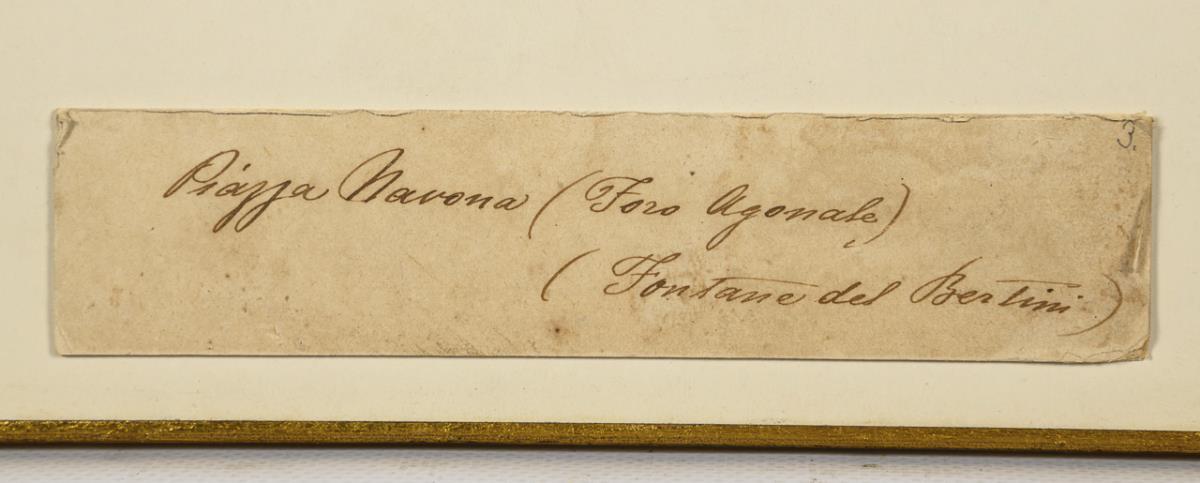 3.
Piazza Navona (Foro Agonale)
(Fontane del Bertini)